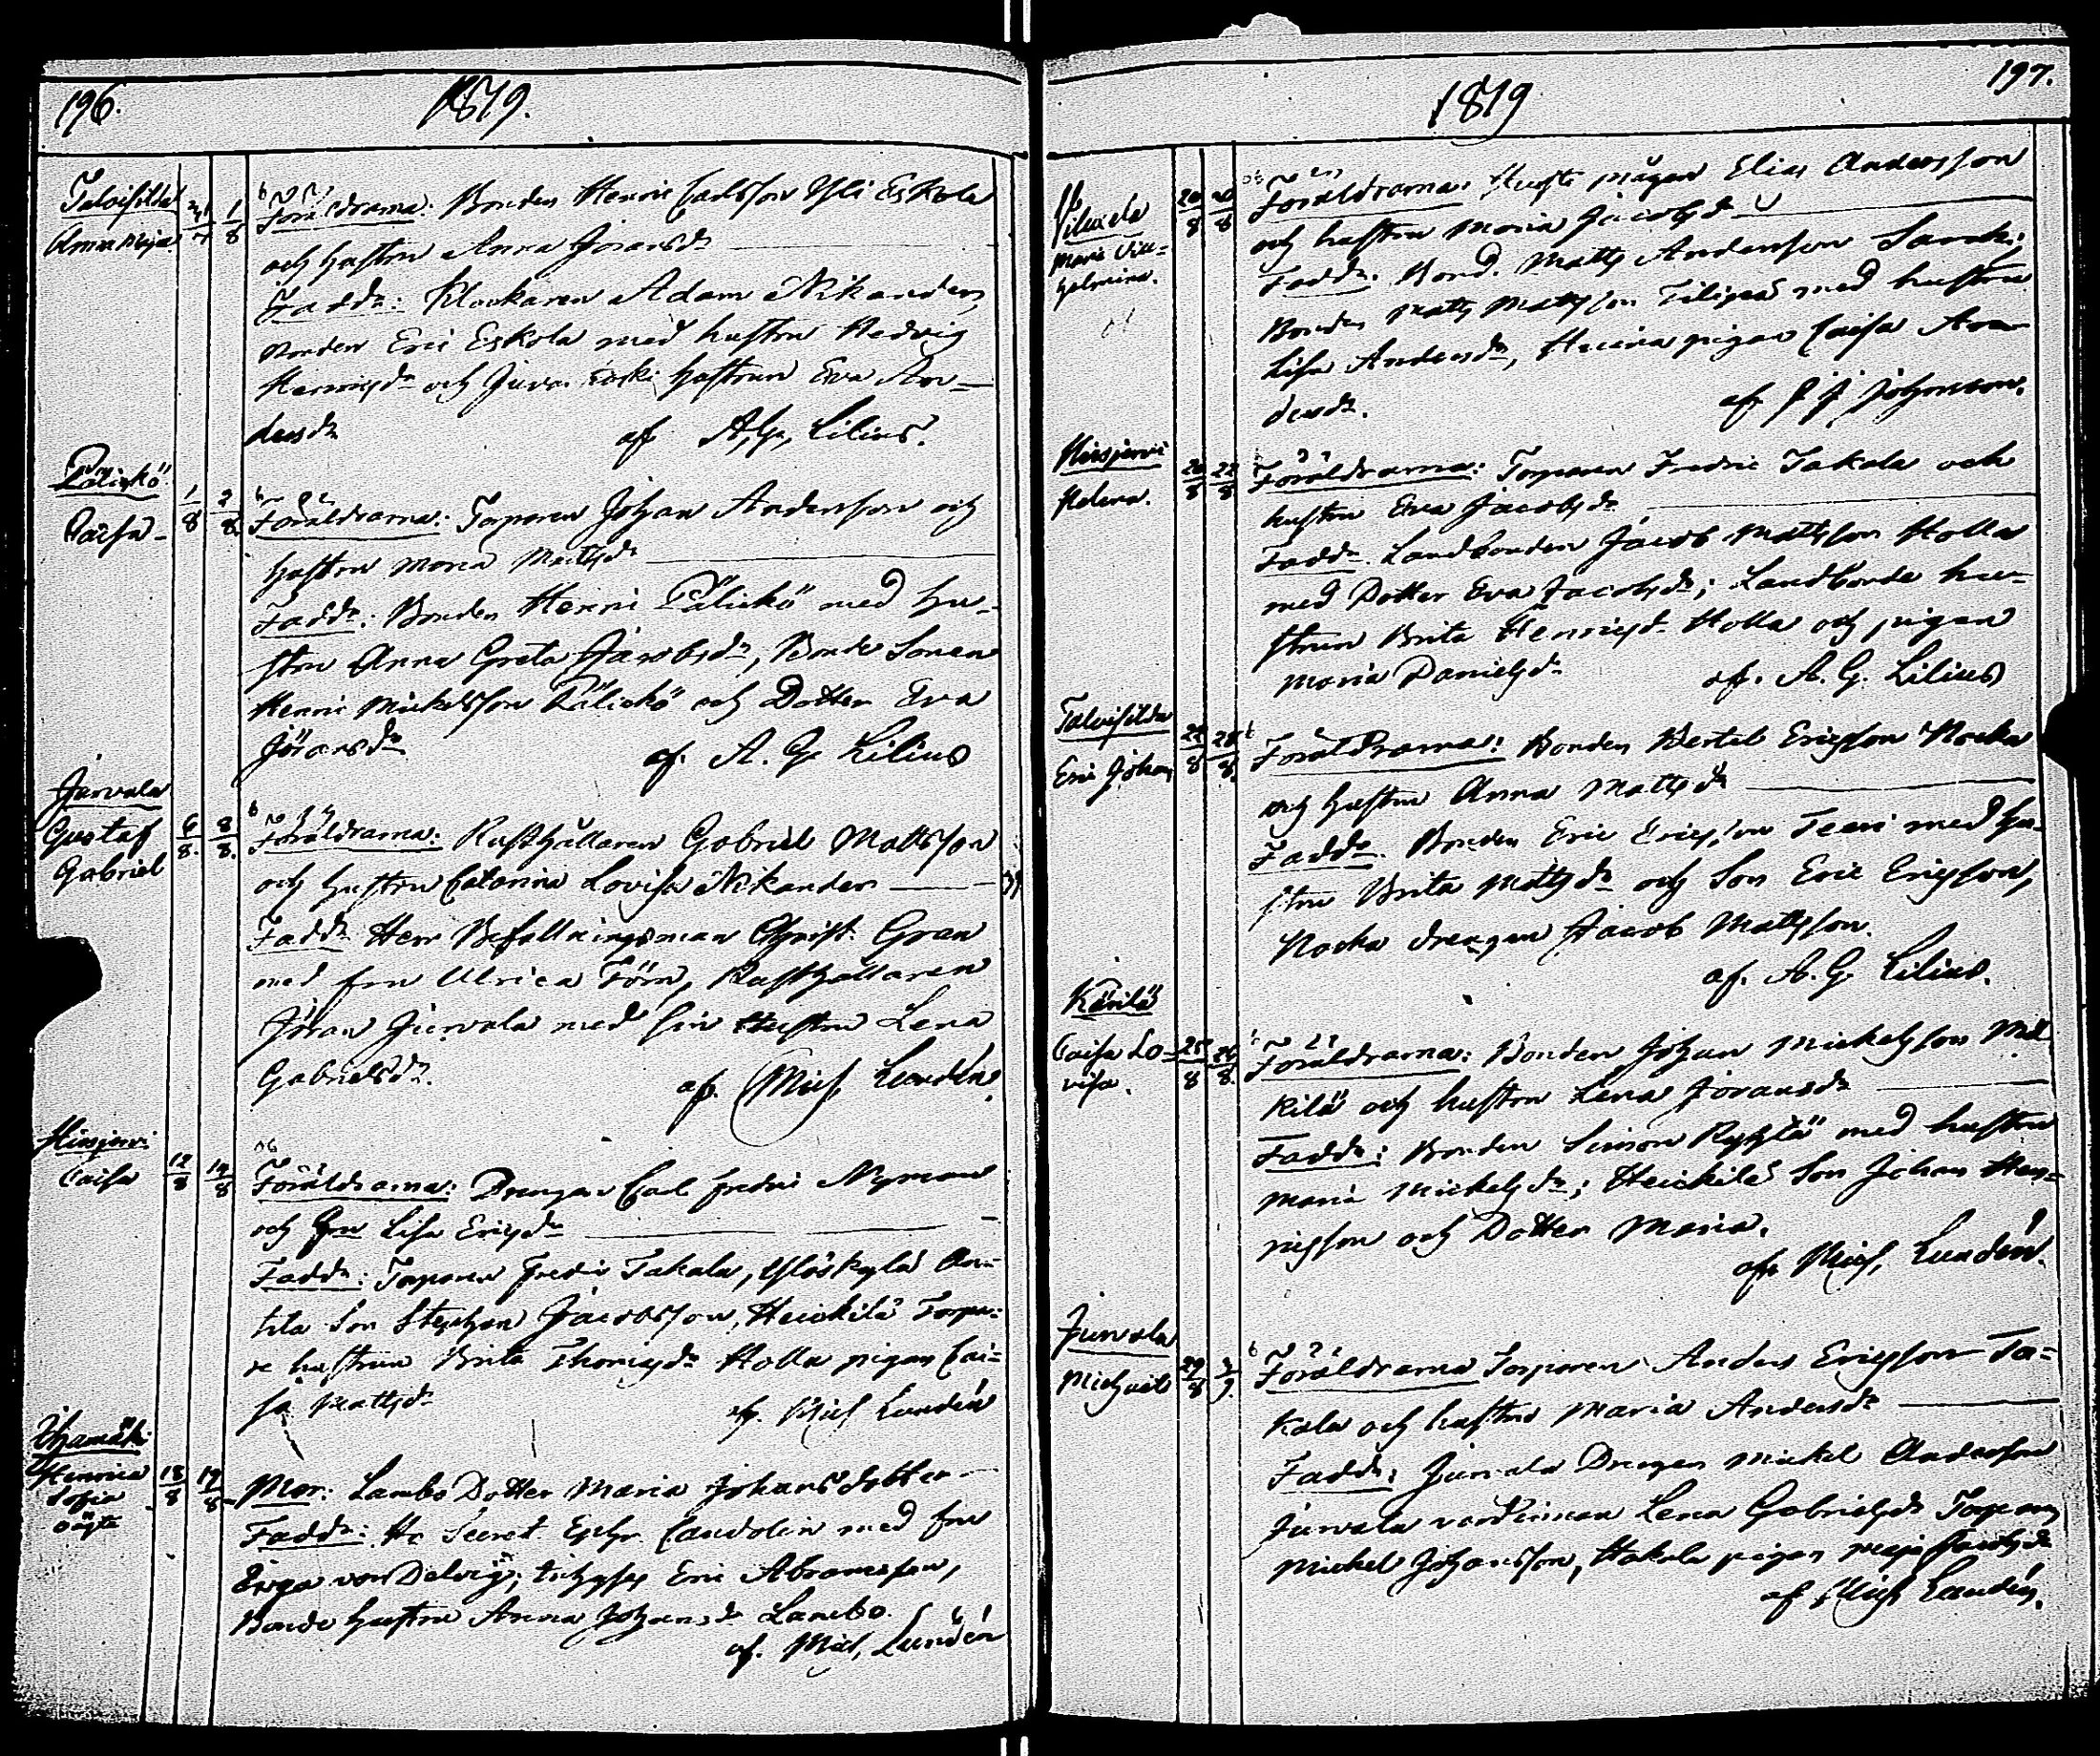 196.
1819.
Talvisilda
Anna Maja
31/7 1/8
Föräldrarna: Bonden Henric Carlsson Yli Eskola
och hustru Anna Joransdr
Faddr: Klockaren Adam Nikander,
Bonden Eric Eskola med hustru Hedvig
Henricsdr och hustrun Eva An-
dersdr
af A. G. Lilius.
Pälickö
Caisa
1/8 2/8
Föräldrarna: Torparen Johan Andersson och
hustru Maria Mattsdr
Faddr: Bonden Henric Pälickö med hu-
stru Anna Greta Jacobsdr, Bonde Sonen
Henric Mickelsson Pälickö och Dotter Eva
Jöransdr
af. A. G. Lilius
Jurvala
Gustaf
Gabriel
6/8. 8/8.
Föräldrarna: Rusthållaren Gabriel Mattsson
och hustru Catarina Lovisa Nikander
Faddr Herr Befallningsman Christ. Gran
med fru Ulrica Törn, Rusthållaren
Jöran Jurvala med sin Hustru Lena
Gabrielsdr.
af. Mich. Lundén.
Hirsjervi
Caisa
12/8 14/8
Föräldrarna: Drengen Carl Fredric Nyman
och Hu Lisa Ericsdr
Faddr: Torparen Fredric Takala, Yliskylä An-
tila Son Stephan Jacobsson, Heickilä Torpa-
re hustrun Brita Thomasdr Holla pigan Cai-
sa Mattsdr
af. Mich Lundén
Henrica
Sofia
oägta
18/8 19/8
Mor: Lambo Dotter Maria Johansdotter
Faddr: Hr Secret. Candolin med fru
von Delvig; Eric Abramsson,
Bonde hustru Anna Johansdr Lambo.
af. Mich. Lundén
197.
1819
Maria Vil-
helmina.
20/8 20/8
Föräldrarna: Elias Andersson
och hustru Maria Jacobsdr
Faddr. Bond. Matts Andersson
Bonden Matts Mattsson med hustru
Lisa Andersdr, pigan Caisa An-
dersdr.
af J. J. Johnsson.
Hirsjervi
Helena.
20/8 22/8
Föräldrarna: Torparen Fredric Takala och
hustru Eva Jacobsdr
Faddr. Landbonden Jacob Mattsson Holla
med Dotter Eva Jacobsdr; Landbonde hu-
strun Brita Henricsdr Holla och pigan
Maria Danielsdr
af. A. G. Lilius
Talvisilda
Eric Johan
22/8 28/8.
Föräldrarna: Bonden Bertel Ericsson Nocka
och hustru Anna Mattsdr
Faddr. Bonden Eric Ericsson Teeri med hu-
stru Brita Mattsdr och Son Eric Ericsson,
Nocka drengen Jacob Mattsson.
af. A. G. Lilius.
Kärilä
Caisa Lo-
visa.
25/8 26/8.
Föräldrarna: Bonden Johan Mickelsson Mic-
kilä och hustru Lena Joransdr
Faddr: Bonden Simon med hustru
Maria Mickelsdr; Heickilä Son Johan Hen-
ricsson och Dotter Maria.
af Mich. Lundén.
Jurvala
Michael
29/8 3/9.
Föräldrarna Torparen Anders Ericsson Ta-
kala och hustru Maria Andersdr
Faddr: Jurvala Drengen Mickel Andersson
Jurvala värdinnan Lena Gabrielsdr Torparen
Mickel Johansson, Hakala pigan Maja Jacobsdr
af Mich Lundén.